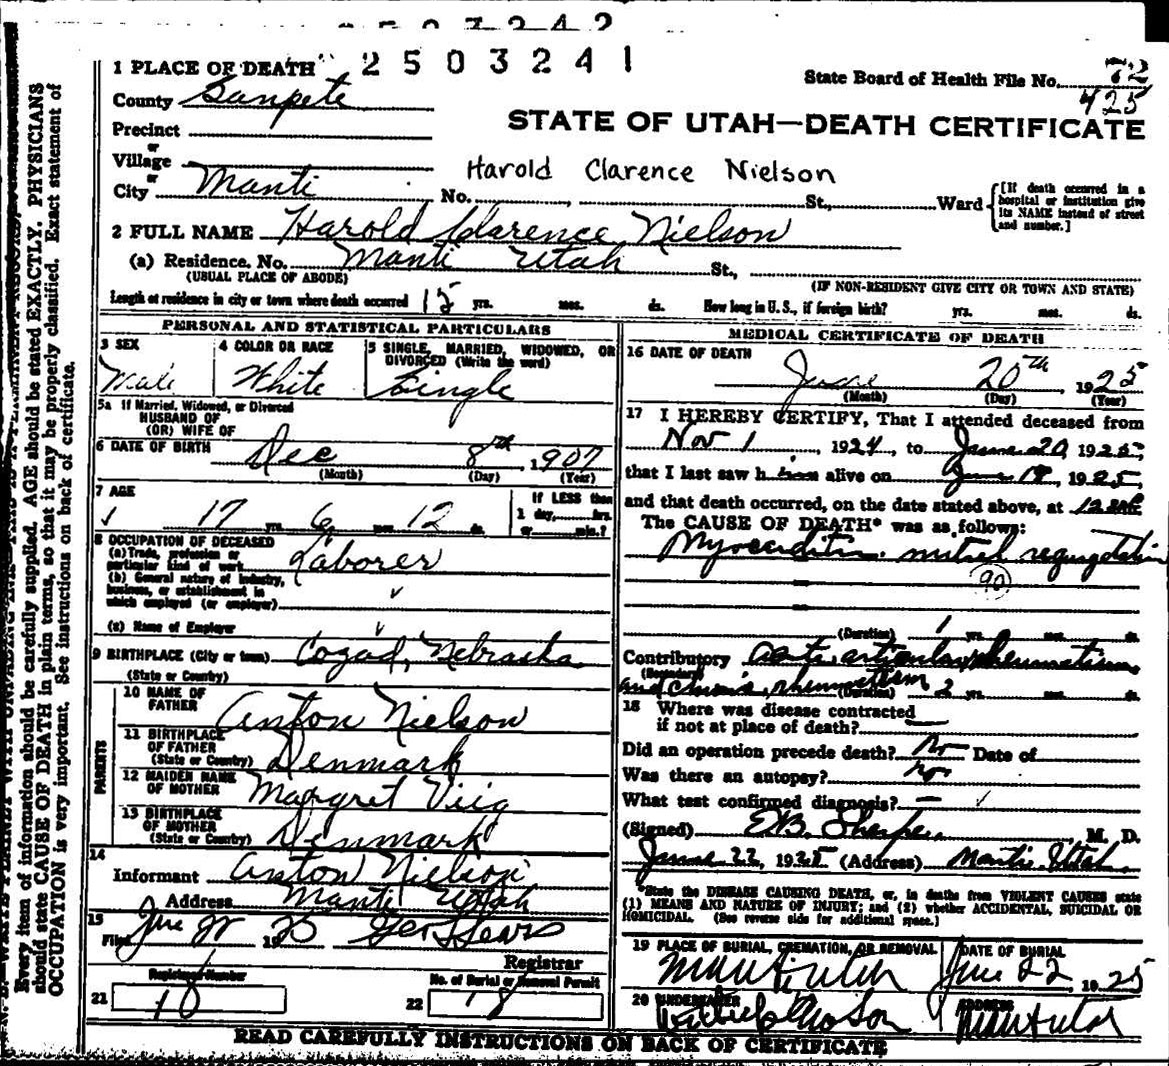 2503242
2503241
1 PLACE OF DEATH
State Board of Health File No. 72
425
County Sanpete
STATE OF UTAH—DEATH CERTIFICATE
Precinct
or
Village
Harold Clarence Nielson
or
City Manti No. St., Ward
[If death occurred in a hospital or institution give its NAME instead of street and number.]
2 FULL NAME Harold Clarence Nielson
(a) Residence. No. Manti Utah St.,
(USUAL PLACE OF ABODE) (IF NON-RESIDENT GIVE CITY OR TOWN AND STATE)
Length of residence in city or town where death occurred 15 yrs. mos. ds. How long in U.S., if foreign birth? yrs. mos. ds.
PERSONAL AND STATISTICAL PARTICULARS
3 SEX
Male
4 COLOR OR RACE
White
5 SINGLE, MARRIED, WIDOWED, OR DIVORCED (Write the word)
Single
5a If Married, Widowed, or Divorced
HUSBAND OF
(OR) WIFE OF
6 DATE OF BIRTH Dec 8th, 1907
(Month) (Day) (Year)
7 AGE
17 yrs. 6 mos. 12 ds.
If LESS than
1 day, hrs.
or min.?
8 OCCUPATION OF DECEASED
(a) Trade, profession or
particular kind of work Laborer
(b) General nature of industry,
business, or establishment in
which employed (or employer)
(c) Name of Employer
9 BIRTHPLACE (City or town) Cozad, Nebraska
(State or Country)
PARENTS
10 NAME OF
FATHER Anton Nielson
11 BIRTHPLACE
OF FATHER
(State or Country) Denmark
12 MAIDEN NAME
OF MOTHER Margret Viig
13 BIRTHPLACE
OF MOTHER
(State or Country) Denmark
14
Informant Anton Nielson
Address Manti Utah
15
Filed June 22 1925
Registrar
Registered Number
21 18
No. of Burial or Removal Permit
22 18
MEDICAL CERTIFICATE OF DEATH
16 DATE OF DEATH
June 20TH 1925
(Month) (Day) (Year)
17 I HEREBY CERTIFY, That I attended deceased from
Nov 1, 1924, to June 20, 1925,
that I last saw h im alive on June 18, 1925,
and that death occurred, on the date stated above, at 12
The CAUSE OF DEATH* was as follows:
Myocarditis mitral regurgitation
90
(Duration) 1 yrs. mos. ds.
Contributory Acute articular rheumatism
(Secondary)
and chronic rheumatism (Duration) 2 yrs. mos. ds.
18 Where was disease contracted
if not at place of death?
Did an operation precede death? No Date of
Was there an autopsy? no
What test confirmed diagnosis? —
(Signed) M. D.
June 22, 1925 (Address) Manti Utah
*State the DISEASE CAUSING DEATH, or, in deaths from VIOLENT CAUSES state
(1) MEANS AND NATURE OF INJURY; and (2) whether ACCIDENTAL, SUICIDAL OR
HOMICIDAL. (See reverse side for additional space.)
19 PLACE OF BURIAL, CREMATION, OR REMOVAL
Manti Utah
DATE OF BURIAL
June 22 1925
20 UNDERTAKER
ADDRESS
Manti Utah
READ CAREFULLY INSTRUCTIONS ON BACK OF CERTIFICATE
Every item of information should be carefully supplied. AGE should be stated EXACTLY. PHYSICIANS
should state CAUSE OF DEATH in plain terms, so that it may be properly classified. Exact statement of
OCCUPATION is very important. See instructions on back of certificate.